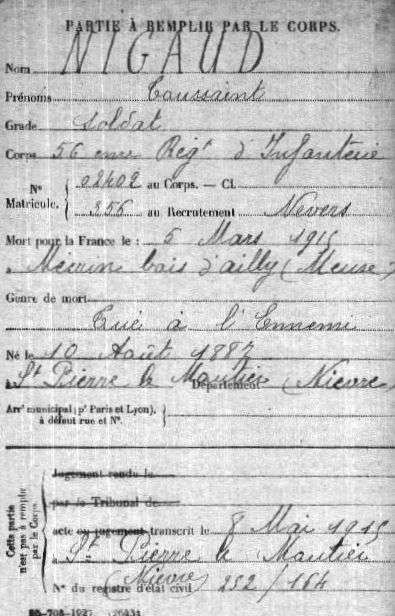 PARTIE À REMPLIR PAR LE CORPS.
Nom NIGAUD
Prénoms Toussaint
Grade Soldat
Corps 56 eme Régt d'Infanterie
N° Matricule. { 02402 au Corps. — Cl.
356 au Recrutement Nevers
Mort pour la France le : 6 Mars 1915
à Mécrin bois d'ailly (Meuse)
Genre de mort
Tué à l'Ennemi
Né le 10 Août 1887
à St Pierre le Moutier Département (Nièvre)
Arrt municipal (pr Paris et Lyon), à défaut rue et N°. {
Cette partie n'est pas à remplir par le Corps. {
Jugement rendu le
par le Tribunal de
acte ou jugement transcrit le 8 Mai 1915
à St Pierre le Moutier
(Nièvre)
N° du registre d'état civil 252/164